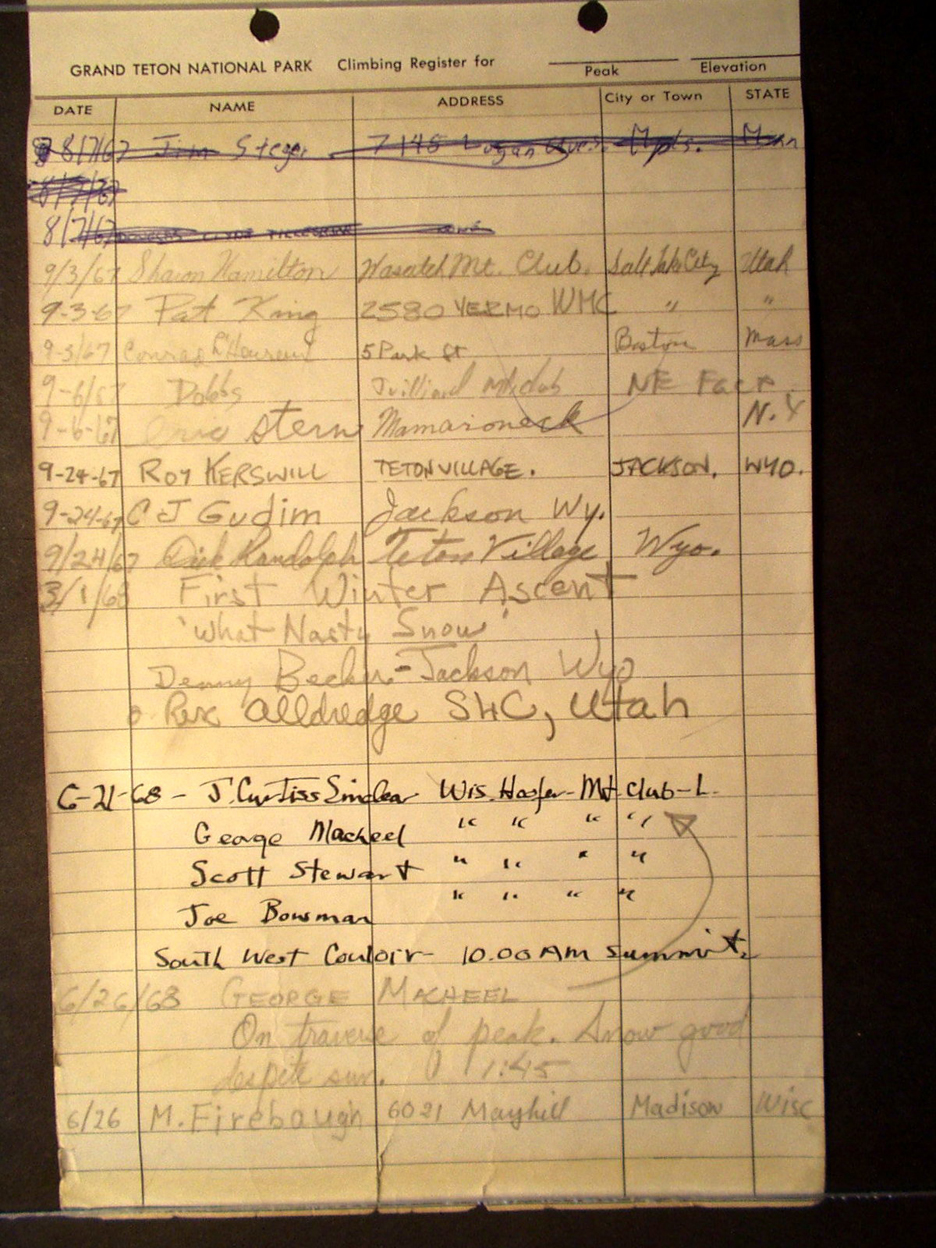 GRAND TETON NATIONAL PARK Climbing Register for
Peak Elevation
DATE NAME ADDRESS City or Town STATE
8/7/67 Jim Steger 7145 Logan Ave. Mpls. Minn
8/7/67
8/7/67
9/3/67 Sharon Hamilton Wasatch Mt. Club. Salt Lake City Utah
9-3-67 Pat King 2580 YERMO WMC " "
9-5/67 5 Park St. Boston Mass
9-6/67 Dobbs NE Face
9-6-67 Stern Mamaroneck N.Y
9-24-67 ROY KERSWILL TETON VILLAGE. JACKSON. WYO.
9-24-67 C J Gudim Jackson Wy.
9/24/67 Dick Randolph Teton Village Wyo.
3/1/68 First Winter Ascent
'What Nasty Snow'
Denny Becker - Jackson Wyo
Rex Alldredge SLC, Utah
6-21-68 - J. Curtiss Sinclear Wis. Hoofer - Mt. Club - L.
George Macheel " " " "
Scott Stewart " " " "
Joe Bowman " " " "
South West Couloir - 10.00 AM Summit.
6/26/68 GEORGE MACHEEL
On traverse of peak. Snow good
despite sun. 1:45
6/26 M. Firebaugh 6021 Mayhill Madison Wisc